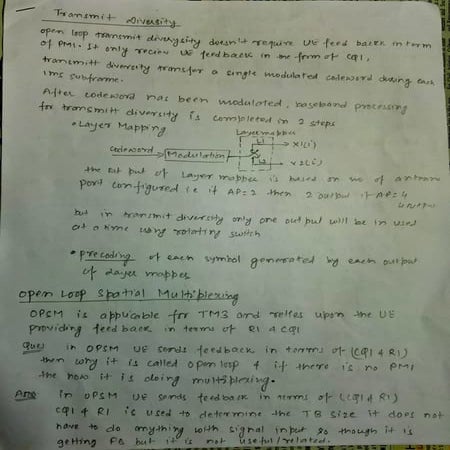 Transmit Diversity
open loop transmit diversity doesn't require UE feed back in term
of PMI. It only recieve UE feedback in the form of CQI,
transmitt diversity transfer a single modulated codeword during each
1ms subframe.
After codeword has been modulated, baseband processing
for transmitt diversity is completed in 2 steps
• Layer Mapping
Layer mapper
codeword → Modulation
L1 → X1(i)
L2 → X2(i)
the out put of Layer mapper is based on no of antenna
port configured i.e if AP=2 then 2 output if AP=4
but in transmit diversity only one output will be in used
at a time using rotating switch
• precoding of each symbol generated by each output
of Layer mapper
Open Loop Spatial Multiplexing
OPSM is applicable for TM3 and relies upon the UE
providing feed back in terms of RI & CQI
Ques in OPSM UE sends feedback in terms of (CQI & RI)
then why it is called open loop & if there is no PMI
the how it is doing multiplexing.
Ans in OPSM UE sends feedback in terms of (CQI & RI)
CQI & RI is used to determine the TB size it does not
have to do anything with signal input so though it is
getting FB but it is not useful/related.